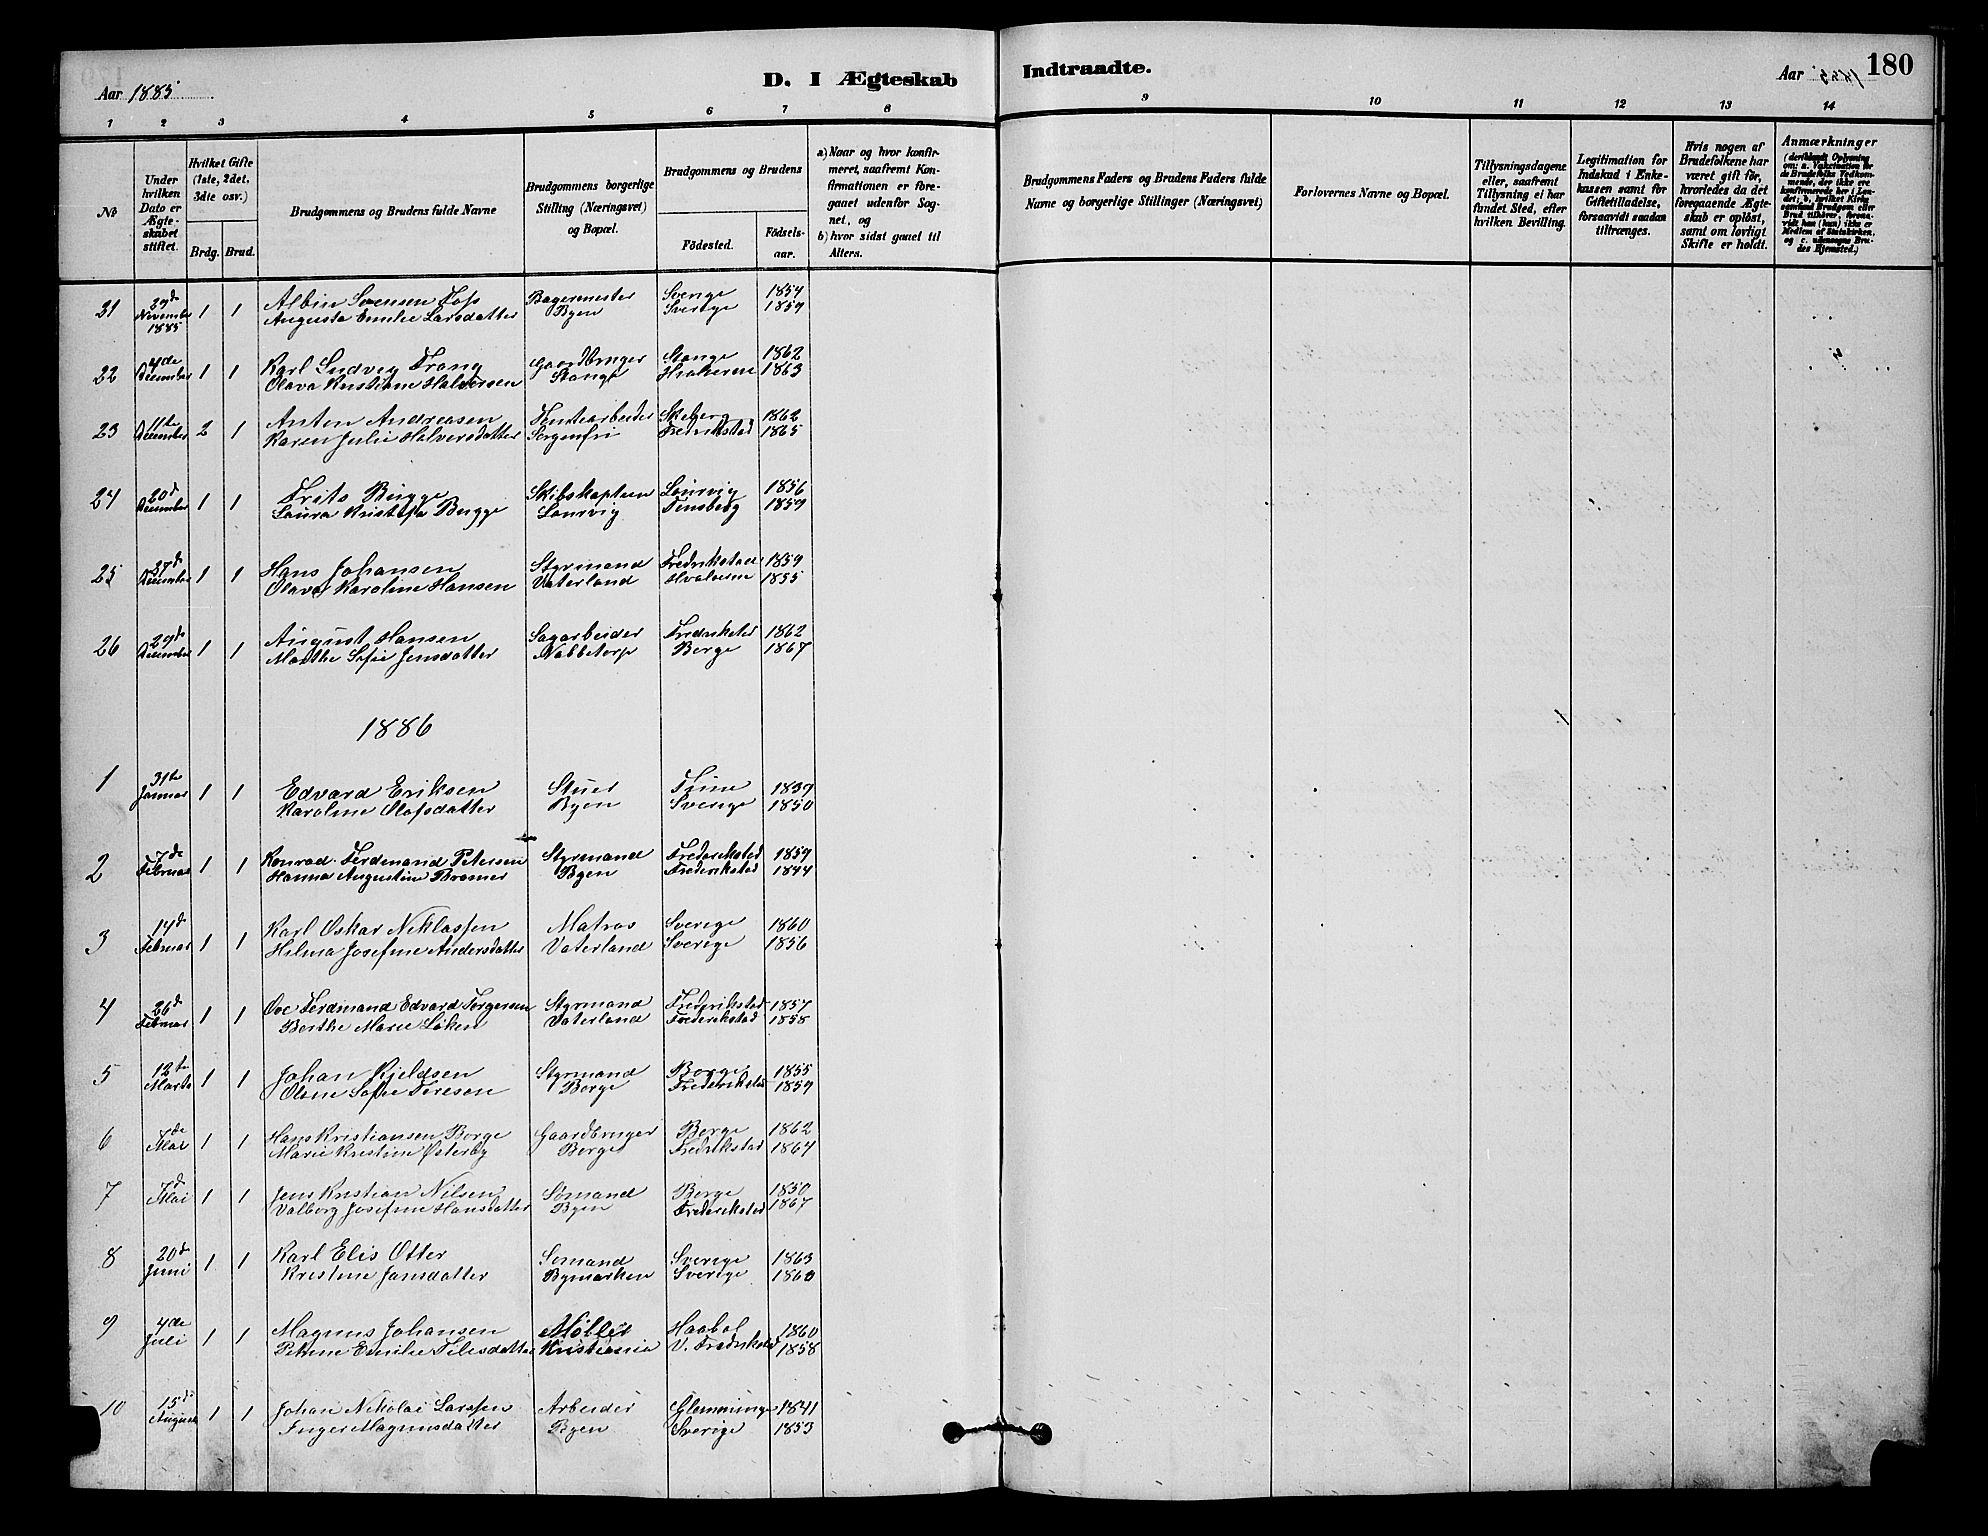 Aar 1885
D. I Ægteskab Indtraadte.
Aar 1885 180
1 2 3 4 5 6 7 8 9 10 11 12 13 14
No
Under hvilken Dato er Ægteskabet stiftet.
Hvilket Gifte (1ste, 2det, 3die osv.)
Brdg. Brud.
Brudgommens og Brudens fulde Navne
Brudgommens borgerlige Stilling (Næringsvei) og Bopæl.
Brudgommens og Brudens
Födested. Födselsaar.
a) Naar og hvor konfirmeret, saafremt Konfirmationen er foregaaet udenfor Sognet, og
b) hvor sidst gaaet til Alters.
Brudgommens Faders og Brudens Faders fulde Navne og borgerlige Stillinger (Næringsvei)
Forlovernes Navne og Bopæl.
Tillysningsdagene eller, saafremt Tillysning ei har fundet Sted, efter hvilken Bevilling.
Legitimation for Indskud i Enkekassen samt for Giftetilladelse, forsaavidt saadan tiltrænges.
Hvis nogen af Brudefolkene har været gift før, hvorledes da det foregaaende Ægteskab er opløst, samt om lovligt Skifte er holdt.
Anmærkninger
21 29de November 1885 1 1 Albin Svensen Foss Bagermester Sverige 1857
Augusta Emilie Larsdatter Byen Sverige 1859
22 4de December 1 1 Karl Ludvig Frang Gaardbruger Stange 1862
Olava Kristiane Halvorsen Stange Hvalerne 1863
23 11te December 2 1 Anton Andreasen Tomtearbeider Skeberg 1862
Karen Julie Halvorsdatter Sorgenfri Fredrikstad 1865
24 20de December 1 1 Frits Bugge Skibskaptein Laurvig 1856
Laura Kristofa Bugge Laurvig Tønsberg 1859
25 27de December 1 1 Hans Johansen Styrmand Fredrikstad 1859
Olava Karoline Hansen Vaterland Hvalerne 1855
26 29de December 1 1 August Hansen Sagarbeider Fredrikstad 1862
Marthe Sofie Jensdatter Nabbetorp Borge 1867
1886
1 31te Januar 1 1 Edvard Eriksen Stuer Tune 1839
Karoline Olofsdatter Byen Sverige 1850
2 7de Februar 1 1 Konrad Ferdinand Petersen Styrmand Frederikstad 1859
Hanna Augustine Bromer Byen Frederikstad 1844
3 14de Februar 1 1 Karl Oskar Niklassen Matros Sverige 1860
Hilma Josefine Andersdatter Vaterland Sverige 1856
4 26de Februar 1 1 Ove Ferdinand Edvard Torgersen Styrmand Frederikstad 1857
Berthe Marie Løken Vaterland Frederikstad 1858
5 12te Marts 1 1 Johan Kjeldsen Styrmand Borge 1855
Olene Sofie Toresen Borge Frederikstad 1859
6 7de Mai 1 1 Hans Kristiansen Borge Gaardbruger Borge 1862
Marie Kristine Østerby Borge Fredrikstad 1864
7 7de Mai 1 1 Jens Kristian Nilsen Sømand Borge 1850
Valborg Josefine Hansdatter Byen Frederikstad 1867
8 20de Juni 1 1 Karl Elis Otter Sømand Sverige 1863
Kristine Jansdatter Bymarken Sverige 1860
9 4de Juli 1 1 Magnus Johansen Møller Haabøl 1860
Petrine Emilie Nilsdatter Kristiania V. Fredrikstad 1858
10 15de August 1 1 Johan Nikolai Larssen Arbeider Glemminge 1841
Inger Magnusdatter Byen Sverige 1853